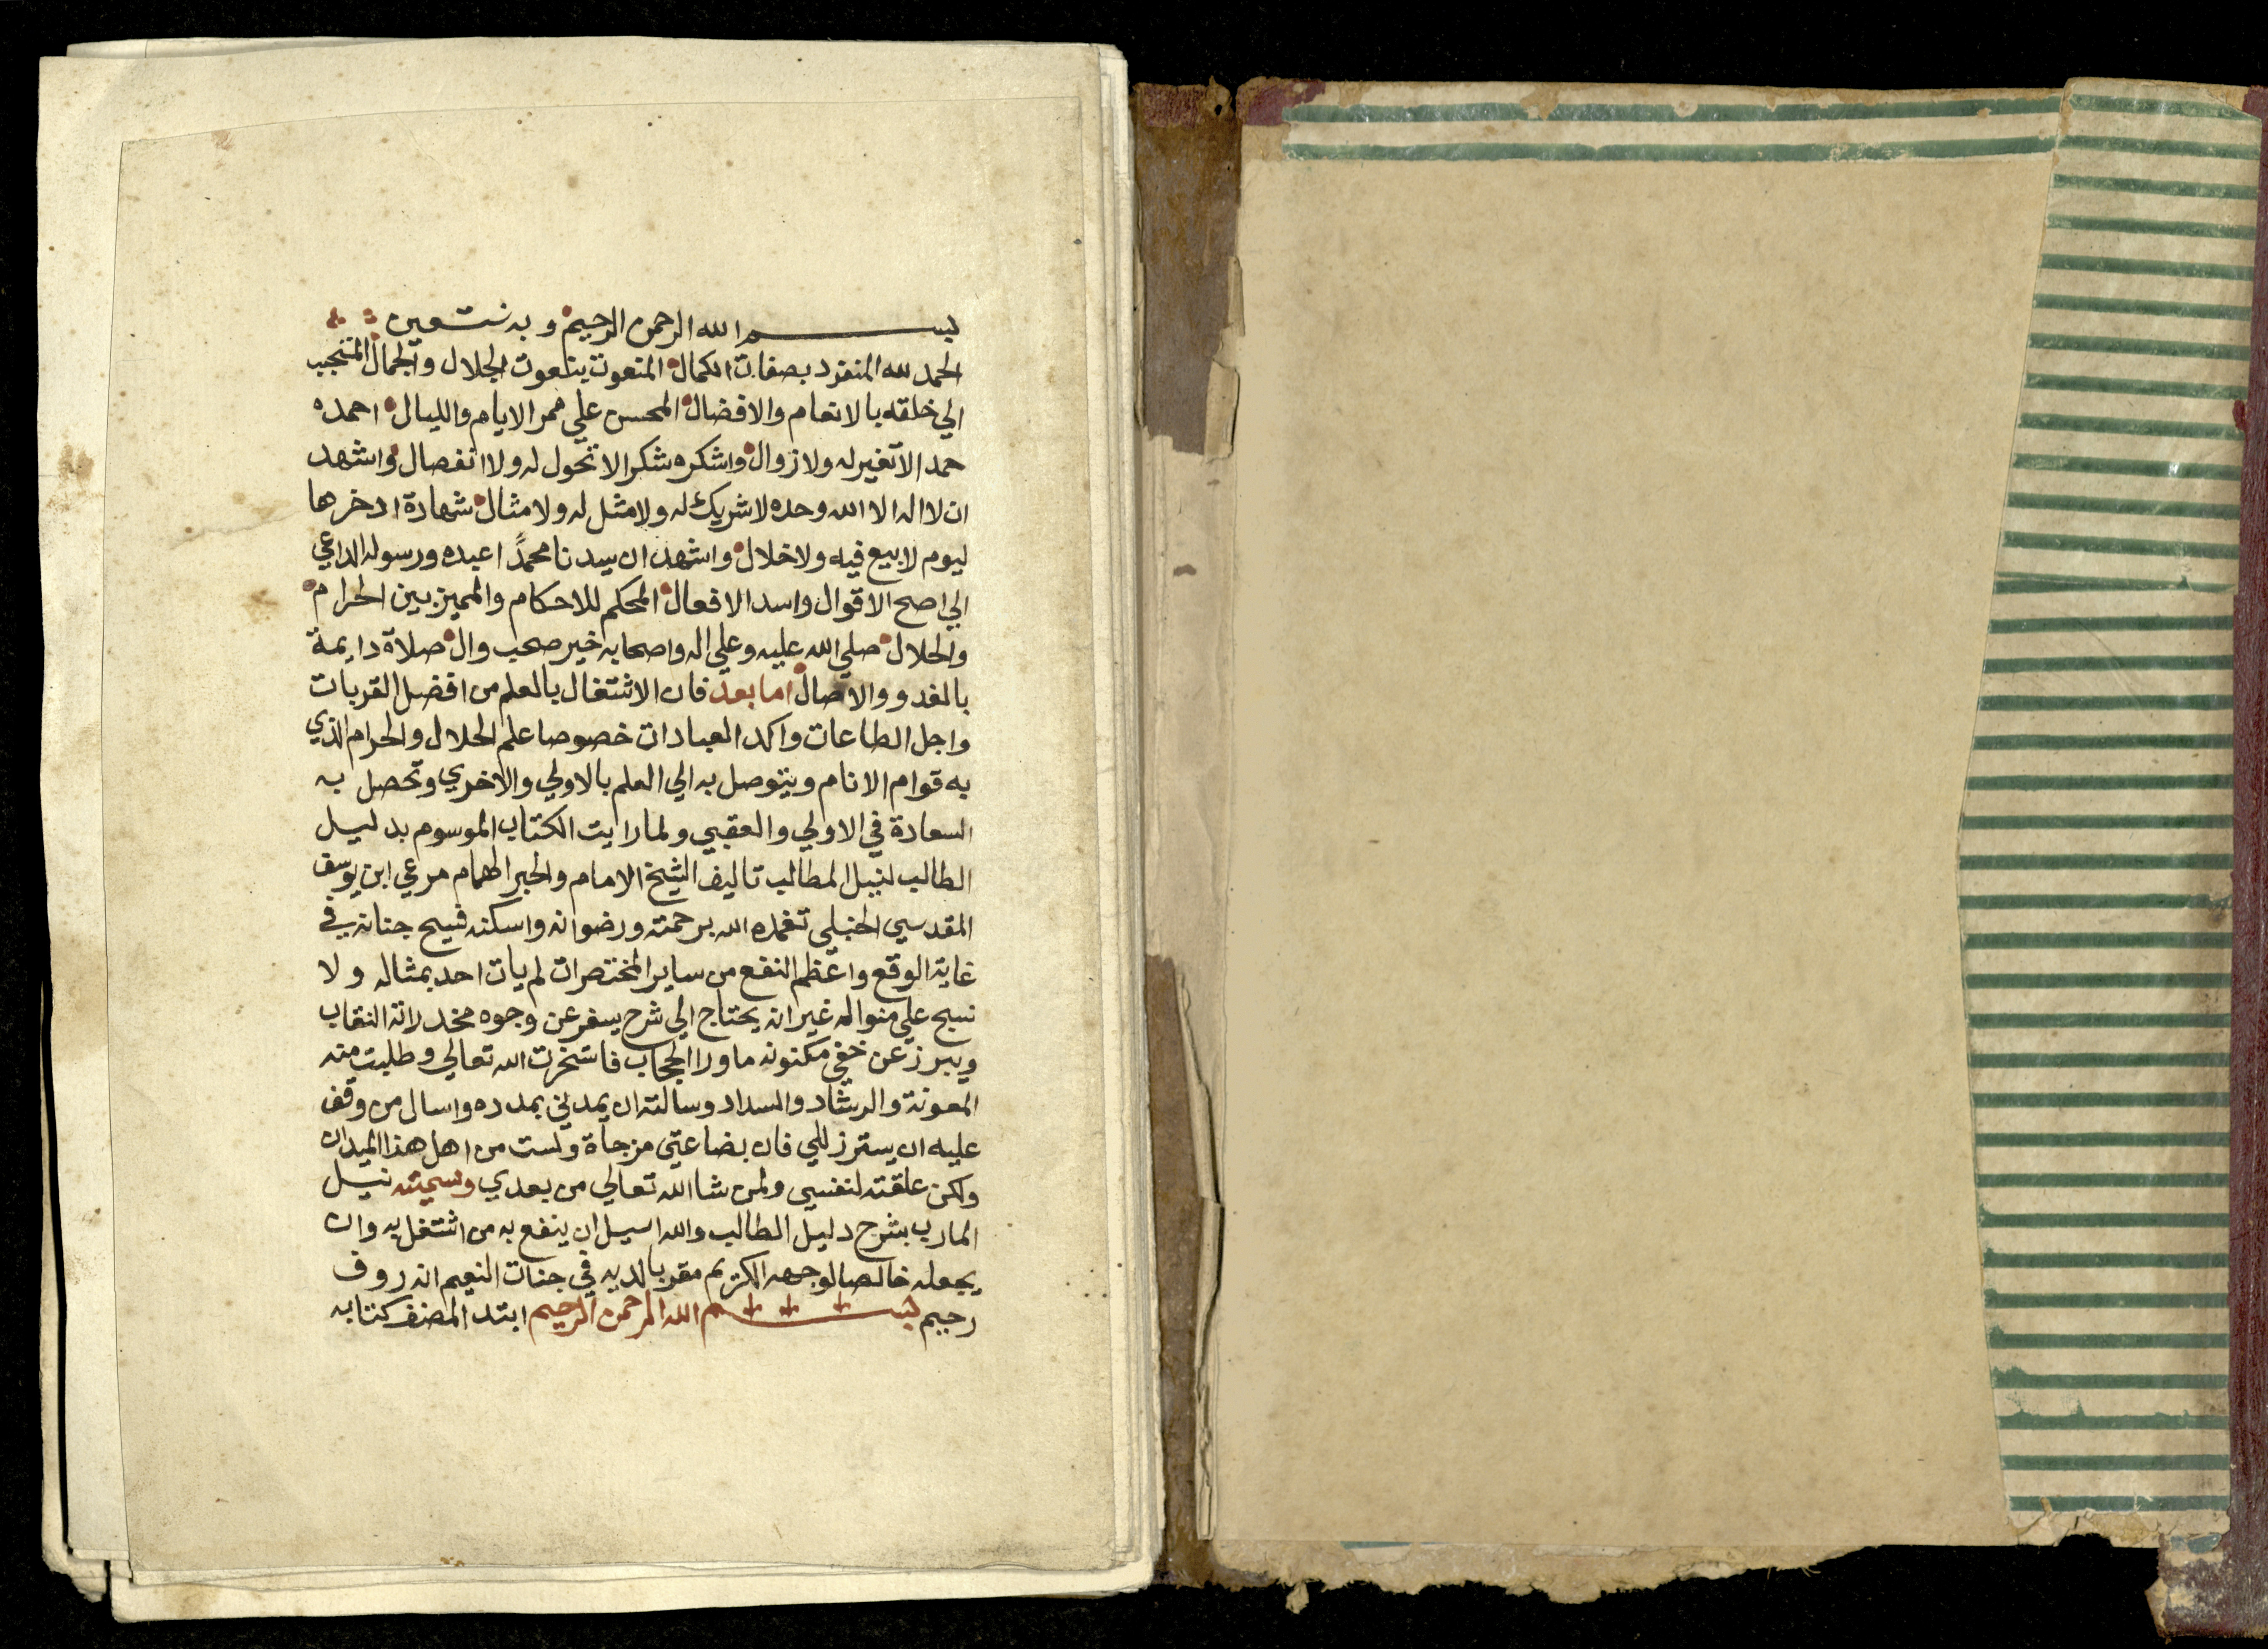 بسم الله الرحمن الرحيم وبه نستعين
الحمد لله المنفرد بصفات الكمال المنعوت بنعوت الجلال والجمال المتحبب
الي خلقه بالانعام والافضال المحسن علي ممر الايام والليال احمده
حمدا لا تغير له ولا زوال واشكره شكرا لا تحول له ولا انفصال واشهد
ان لا اله الا الله وحده لا شريك له ولا مثل له ولا مثال شهادة ادخرها
ليوم لا بيع فيه ولا خلال واشهد ان سيدنا محمدًا عبده ورسوله الداعي
الي اصح الاقوال واسد الافعال المحكم للاحكام والمميز بين الحرام
والحلال صلي الله عليه وعلي اله واصحابه خير صحب وال صلاة دايمة
بالغدو والاصال اما بعد فان الاشتغال بالعلم من افضل القربات
واجل الطاعات واكد العبادات خصوصا علم الحلال والحرام الذي
به قوام الانام ويتوصل به الي العلم بالاولي والاخري وتحصل به
السعادة في الاولي والعقبي ولما رايت الكتاب الموسوم بدليل
الطالب لنيل المطالب تاليف الشيخ الامام والحبر الهمام مرعي ابن يوسف
المقدسي الحنبلي تغمده الله برحمته ورضوانه واسكنه فسيح جنانه في
غاية الوقع واعظم النفع من ساير المختصرات لم يات احد بمثاله ولا
نسج علي منواله غير انه يحتاج الي شرح يسفر عن وجوه مخدراته النقاب
ويبرز عن خفي مكنونه ما ورا الحجاب فاستخرت الله تعالي وطلبت منه
المعونة والرشاد والسداد وسالته ان يمدني بمدده واسال من وقف
عليه ان يستر زللي فان بضاعتي مزجاة ولست من اهل هذا الميدان
ولكن علقته لنفسي ولمن شا الله تعالي من بعدي وسميته نيل
المارب بشرح دليل الطالب والله اسيل ان ينفع به من اشتغل به وان
يجعله خالصا لوجهه الكريم مقربا لديه في جنات النعيم انه روف
رحيم بسم الله الرحمن الرحيم ابتدا المصنف كتابه